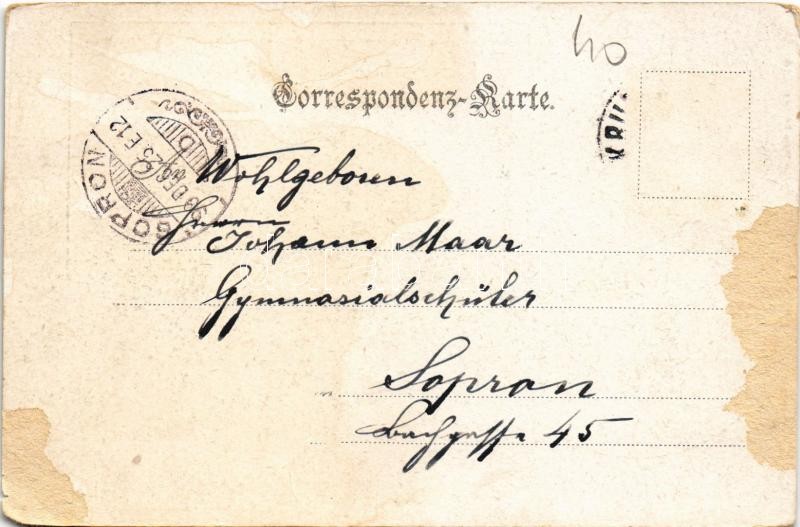 40
Correspondenz-Karte.
SOPRON
Wohlgeboren
Herrn
Johann Maar
Gymnasialschüler
Sopron
Bachgasse 45